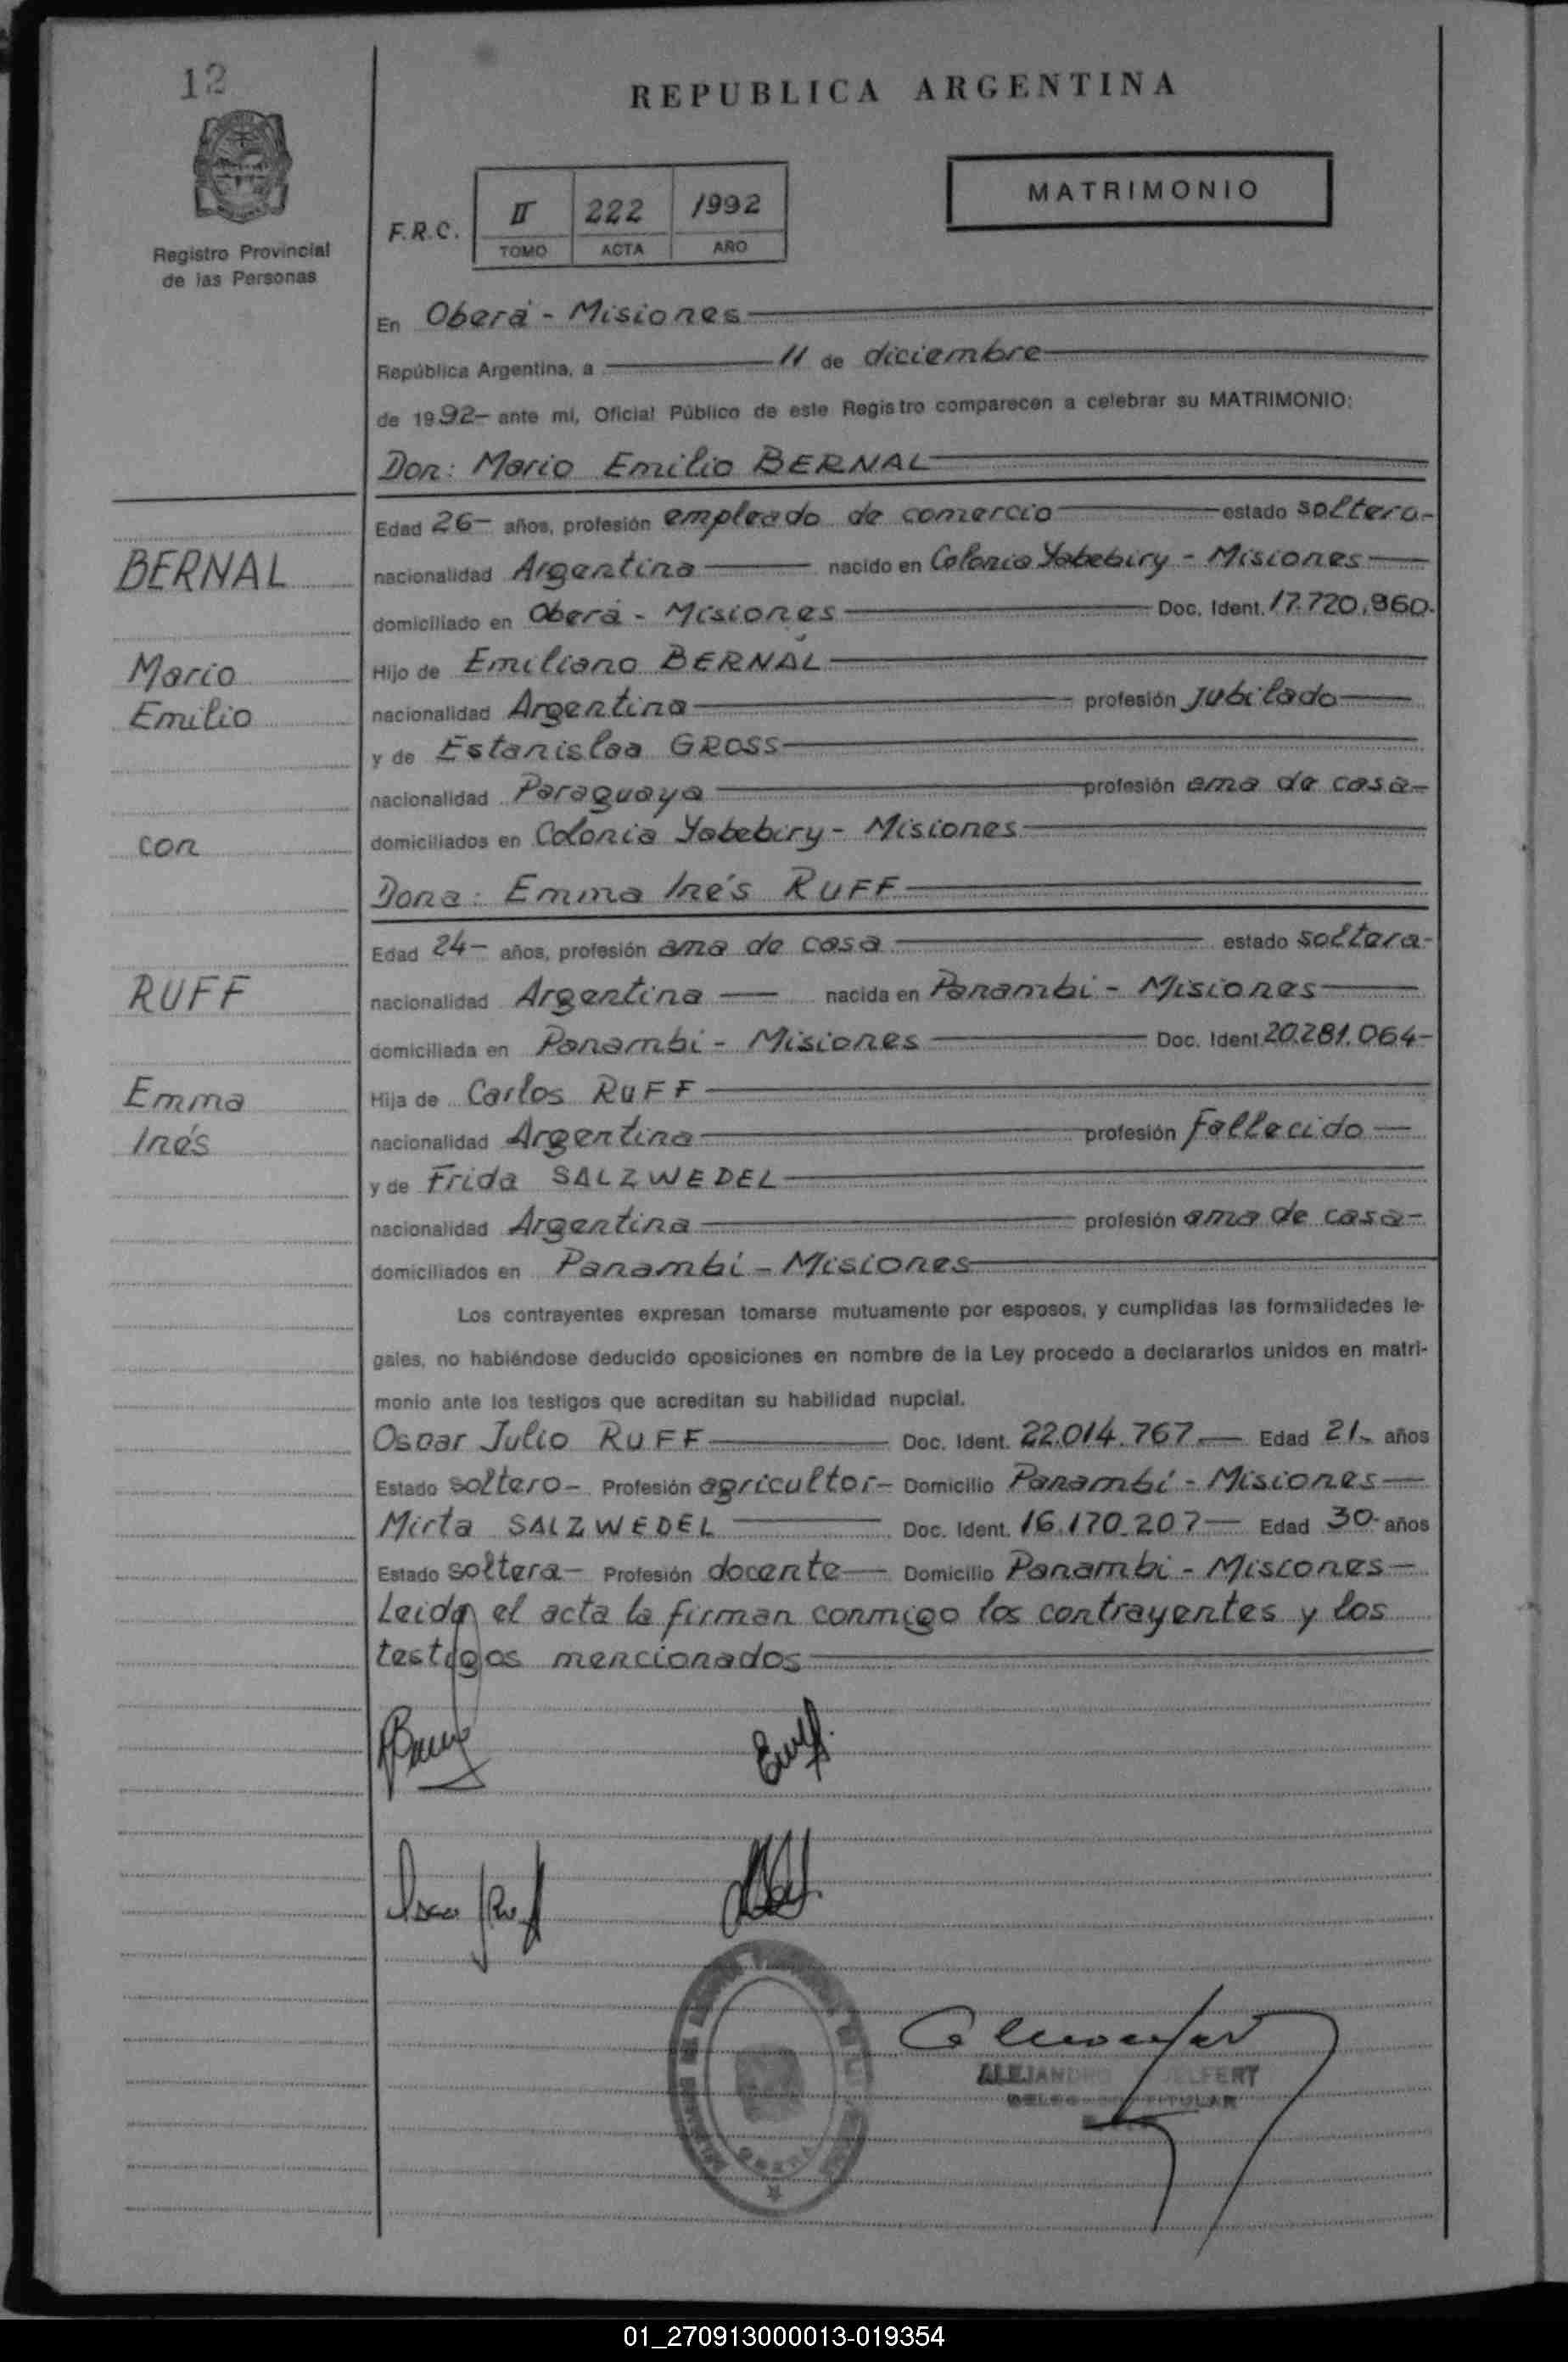 12
REPUBLICA ARGENTINA
MATRIMONIO
F.R.C.
II 222 1992
TOMO ACTA AÑO
Registro Provincial
de las Personas
En Oberá - Misiones
República Argentina, a 11 de diciembre
de 1992- ante mi, Oficial Público de este Registro comparecen a celebrar su MATRIMONIO:
Don: Mario Emilio BERNAL
Edad 26- años, profesión empleado de comercio estado soltero-
BERNAL
nacionalidad Argentina nacido en Colonia Yabebiry - Misiones
domiciliado en Oberá - Misiones Doc. Ident. 17.720.960.
Mario
Hijo de Emiliano BERNAL
Emilio
nacionalidad Argentina profesión Jubilado
y de Estanislaa GROSS
nacionalidad Paraguaya profesión ama de casa-
con
domiciliados en Colonia Yabebiry - Misiones
Dona: Emma Inés RUFF
Edad 24- años, profesión ama de casa estado soltera-
RUFF
nacionalidad Argentina nacida en Panambi - Misiones
domiciliada en Panambi - Misiones Doc. Ident 20.281.064-
Emma
Hija de Carlos RUFF
Inés
nacionalidad Argentina profesión fallecido
y de Frida SALZWEDEL
nacionalidad Argentina profesión ama de casa-
domiciliados en Panambí - Misiones
Los contrayentes expresan tomarse mutuamente por esposos, y cumplidas las formalidades le-
gales, no habiéndose deducido oposiciones en nombre de la Ley procedo a declararlos unidos en matri-
monio ante los testigos que acreditan su habilidad nupcial.
Oscar Julio RUFF Doc. Ident. 22.014.767. Edad 21- años
Estado soltero- Profesión agricultor- Domicilio Panambí - Misiones
Mirta SALZWEDEL Doc. Ident. 16.170.207 Edad 30- años
Estado soltera- Profesión docente Domicilio Panambi - Misiones
Leida el acta la firman conmigo los contrayentes y los
testigos mencionados
ALEJANDRO ELFERT
TITULAR
OBERA
01_270913000013-019354